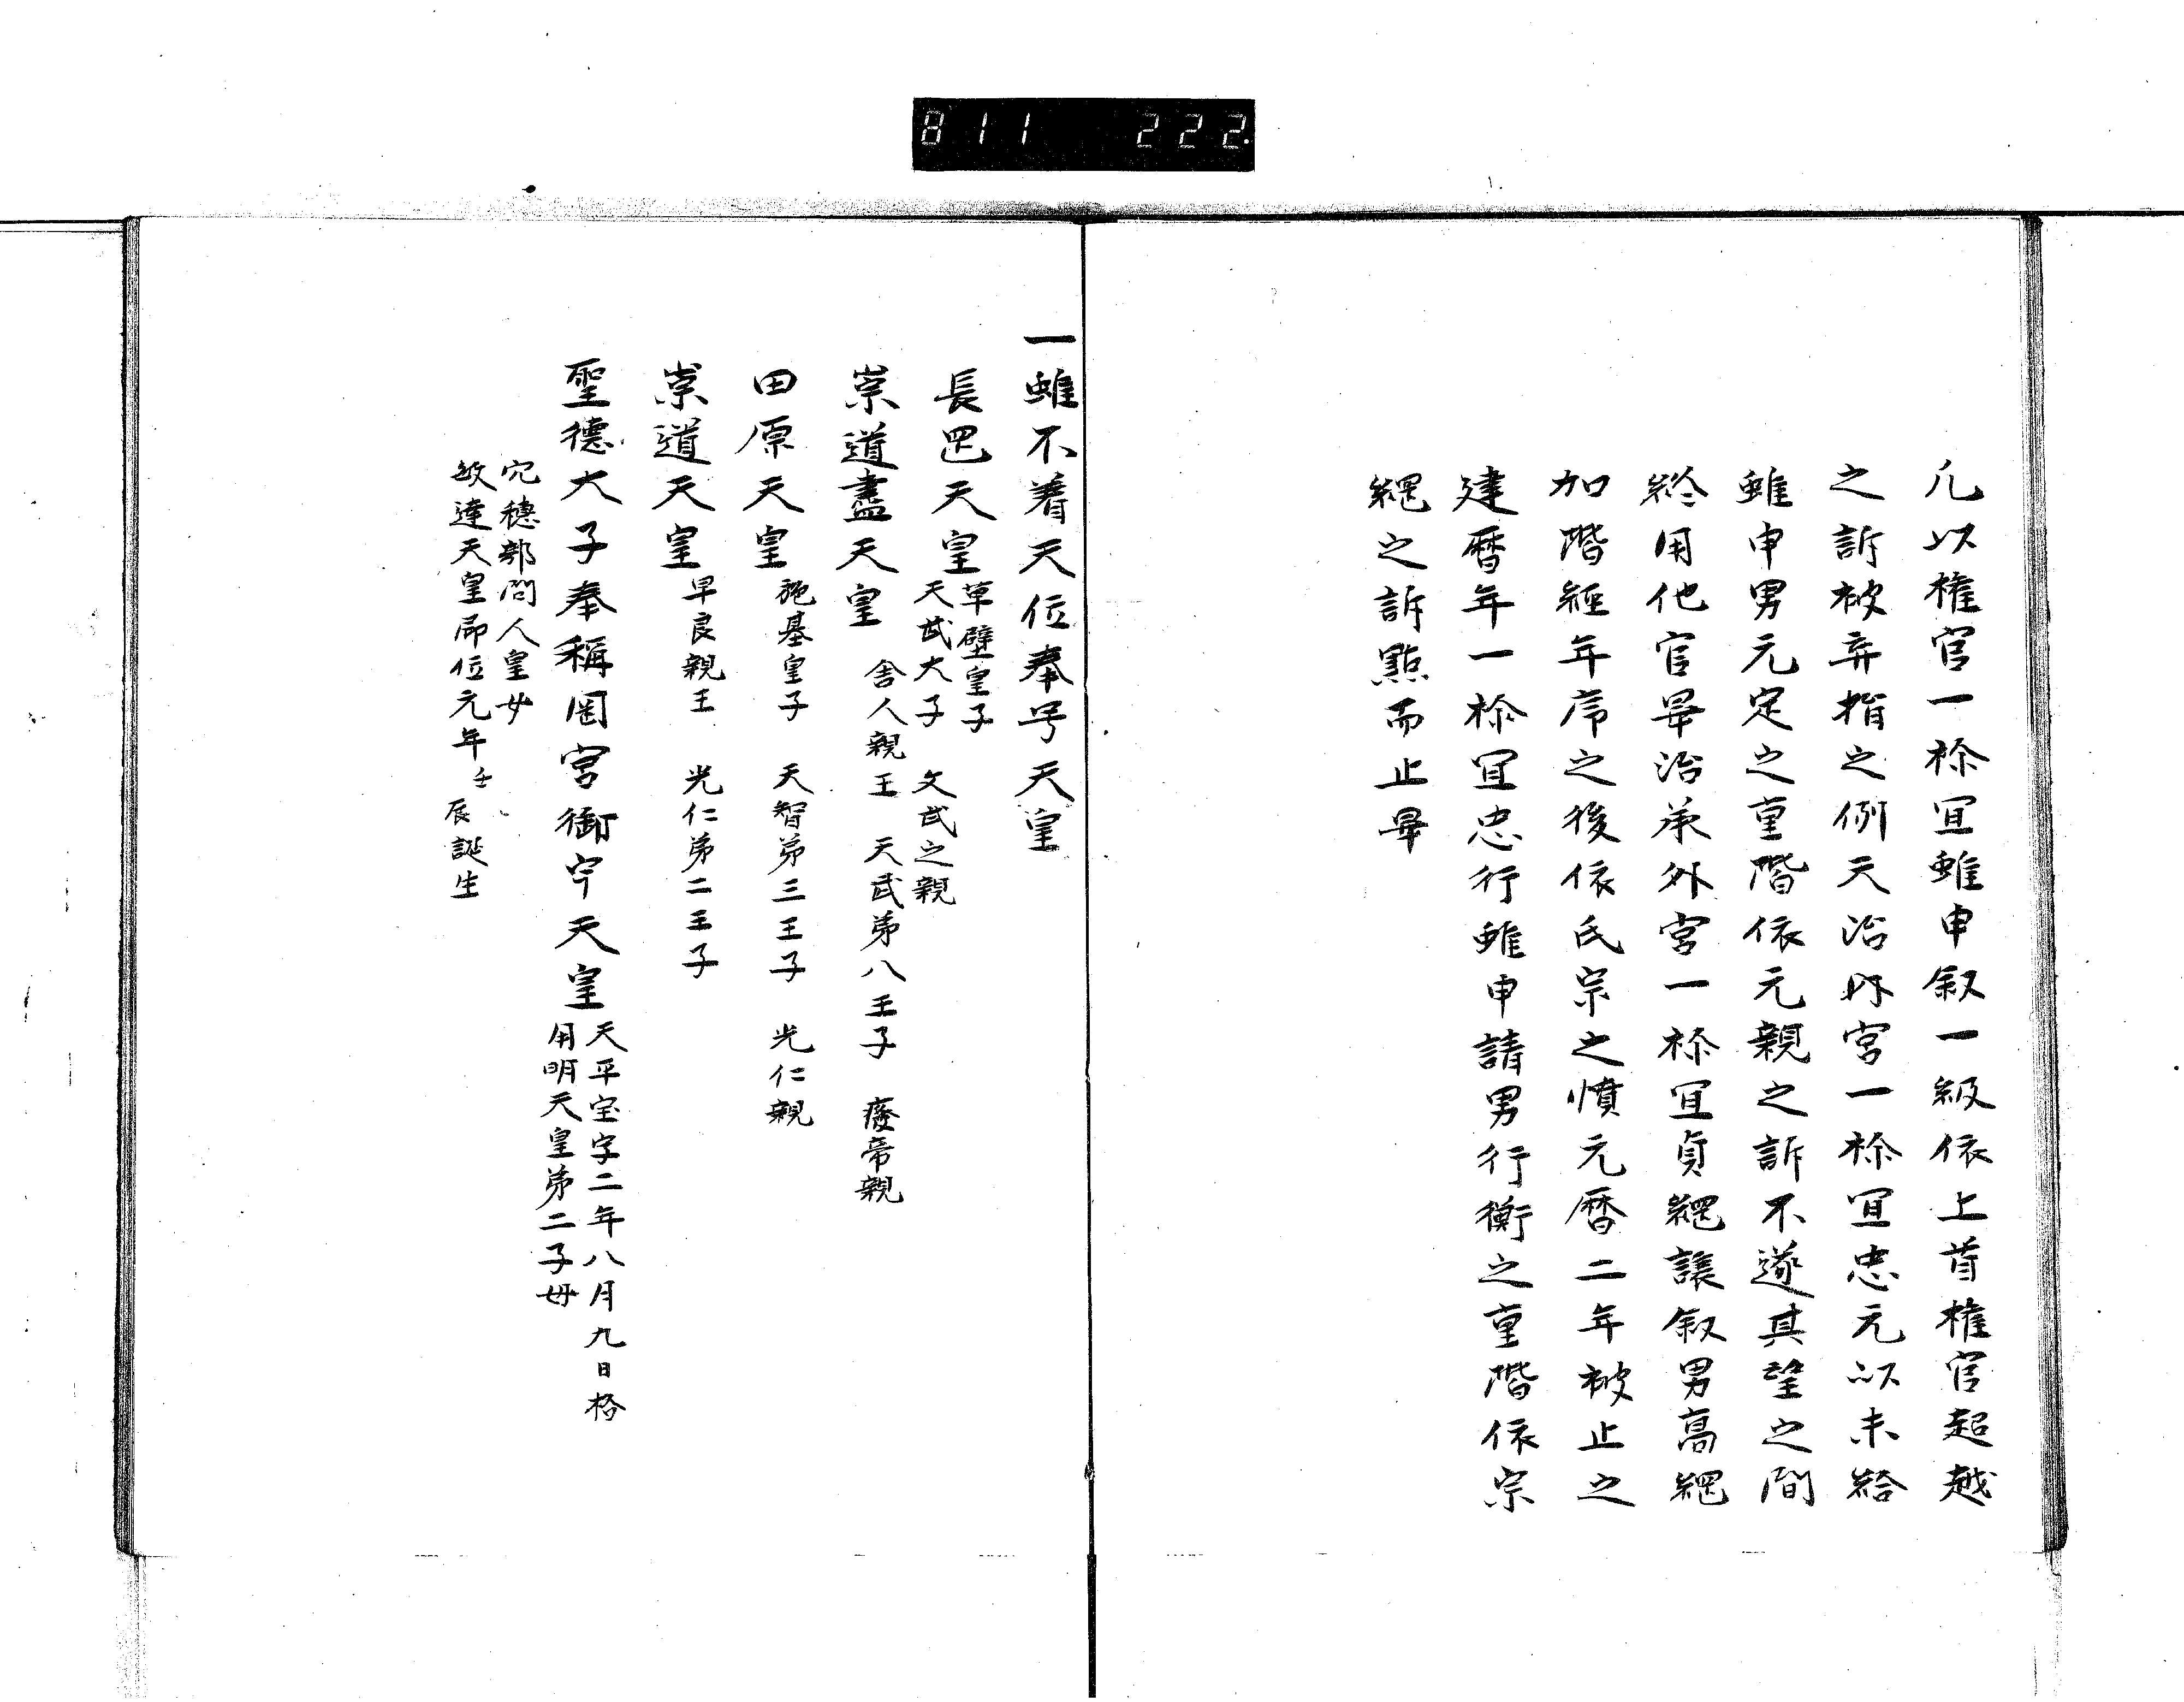 811 222
凡以権官一祢冝雖申叙一級依上首権官超越
之訴被弃指之例天治外宮一祢冝忠元以未給
雖申男元定之重階依元親之訴不遂其望之間
終用他官畢治承外宮一祢冝貞綱譲叙男高綱
加階經年序之後依氏宗之憤元暦二年被止之
建暦年一祢冝忠行雖申請男行衡之重階依宗
綱之訴點而止畢
一雖不着天位奉号天皇
長罡天皇草壁皇子
天武大子 文武之親
崇道盡天皇 舎人親王 天武弟八王子 廃帝親
田原天皇 施基皇子 天智弟三王子 光仁親
崇道天皇早良親王 光仁弟二王子
聖德大子奉稱罡宮御宇天皇天平宝字二年八月九日格
用明天皇弟二子母
穴穗部間人皇女
敏達天皇即位元年壬辰誕生